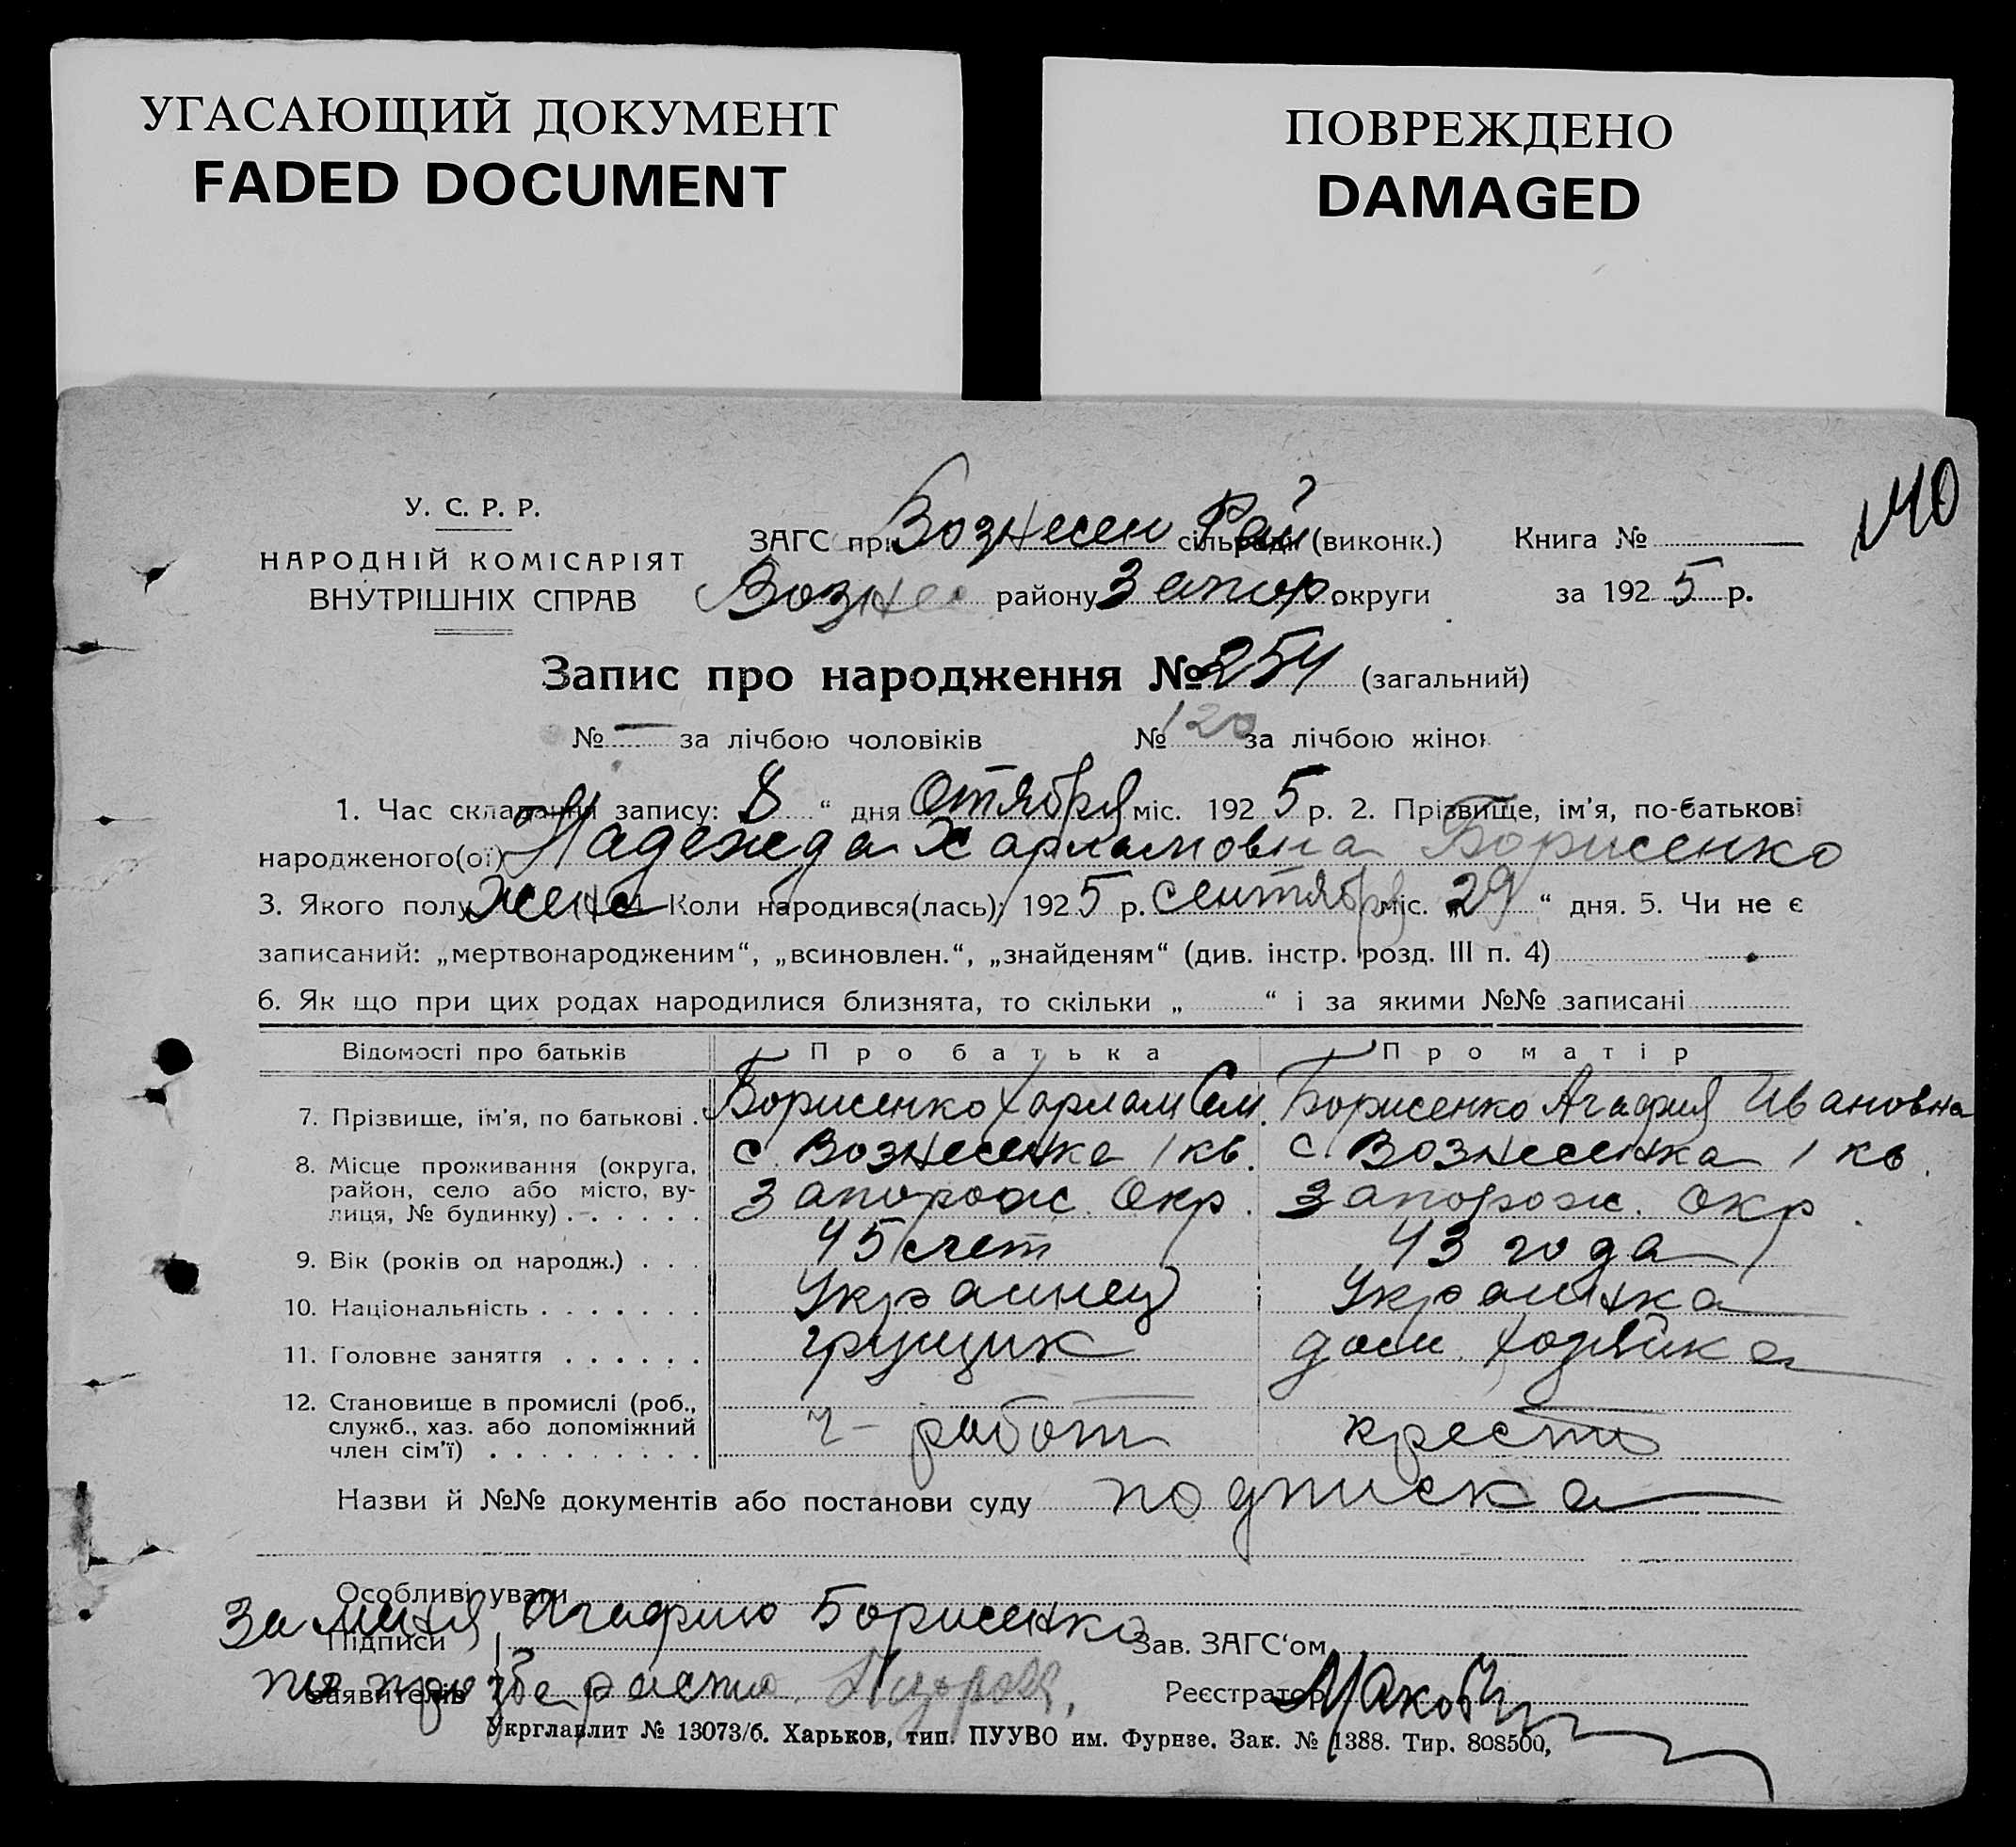 УГАСАЮЩИЙ ДОКУМЕНТ
FADED DOCUMENT
ПОВРЕЖДЕНО
DAMAGED
140
У. С. Р. Р.
НАРОДНІЙ КОМІСАРІЯТ
ВНУТРІШНІХ СПРАВ
ЗАГС при Вознесен Рай сільради (виконк.)
Вознес району Запор округи
Книга №
за 1925 р.
Запис про народження № 254 (загальний)
№ — за лічбою чоловіків № 120 за лічбою жінок
1. Час складання запису: 8 “ дня Отября міс. 1925 р. 2. Прізвище, ім’я, по-батькові
народженого(ої) Надежда Харламовна Борисенко
3. Якого полу жен 4. Коли народився(лась) 1925 р. сентября міс. „ 29 “ дня. 5. Чи не є
записаний: „мертвонародженим“, „всиновлен.“, „знайденям“ (див. інстр. розд. III п. 4)
6. Як що при цих родах народилися близнята, то скільки „ “ і за якими №№ записані
Відомості про батьків Про батька Про матір
7. Прізвище, ім’я, по батькові . Борисенко Харлам Сем. Борисенко Агафия Ивановна
8. Місце проживання (округа, с. Вознесенка 1 кв. с. Вознесенка 1 кв.
район, село або місто, ву-
лиця, № будинку) . . . . . . Запорож. Окр. Запорож. окр.
9. Вік (років од народж.) . . . 45 лет 43 года
10. Національність . . . . . . . Украинец Украинка
11. Головне заняття . . . . . . грущик дом. хозяйка
12. Становище в промислі (роб.,
служб., хаз. або допоміжний ч- работ крестн
член сім’ї) . . . . . . . . .
Назви й №№ документів або постанови суду подписка
Особливі уваги
За меня Агафию Борисенко
Підписи Зав. ЗАГС‘ом
заявителів по прозбе расто. Реєстратор
Укрглавлит № 13073/б. Харьков, тип. ПУУВО им. Фурнзе. Зак. № 1388. Тир. 808500,